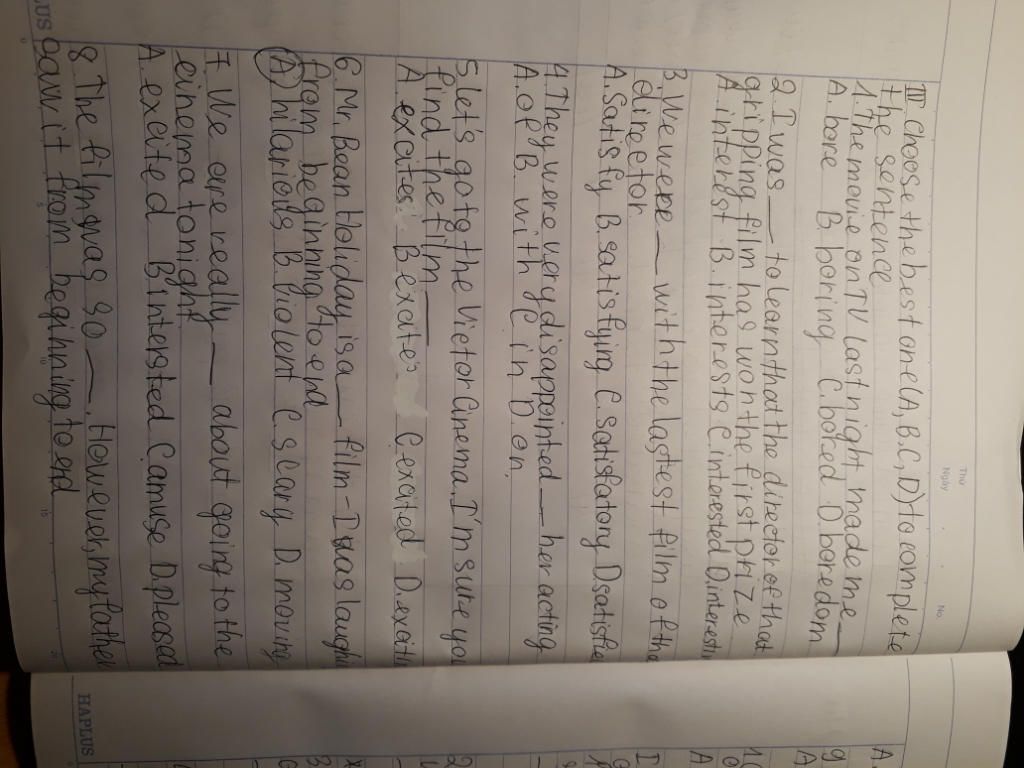 HAPLUS
Thứ
Ngày
No.
III. choose the best one(A, B, C, D) to complete
the sentence
1. The movie on TV last night made me
A. bore B. boring C. bored D. boredom
2. I was — to learn that the director of that
gripping film has won the first prize
A. interest B. interests C. interested D.
3. We were — with the lastest film of the
director
A. Satisfy B. satisfying C. satisfatory D.
4. They were very disappointed — her acting
A. of B. with C. in D. on.
5. let's go to the Victor Cinema. I'm sure you
find the film —
A. excites B. excites C. excited D.
6. Mr. Bean Holiday is a — film - I was
from beginning to end
A) hilarious B. violent C. scary D. moving
7. We are really — about going to the
cinema tonight
A. excited B intersted C amuse D. pleased
8. The film was so —. However, my father
saw it from beginning to end
HAPLUS